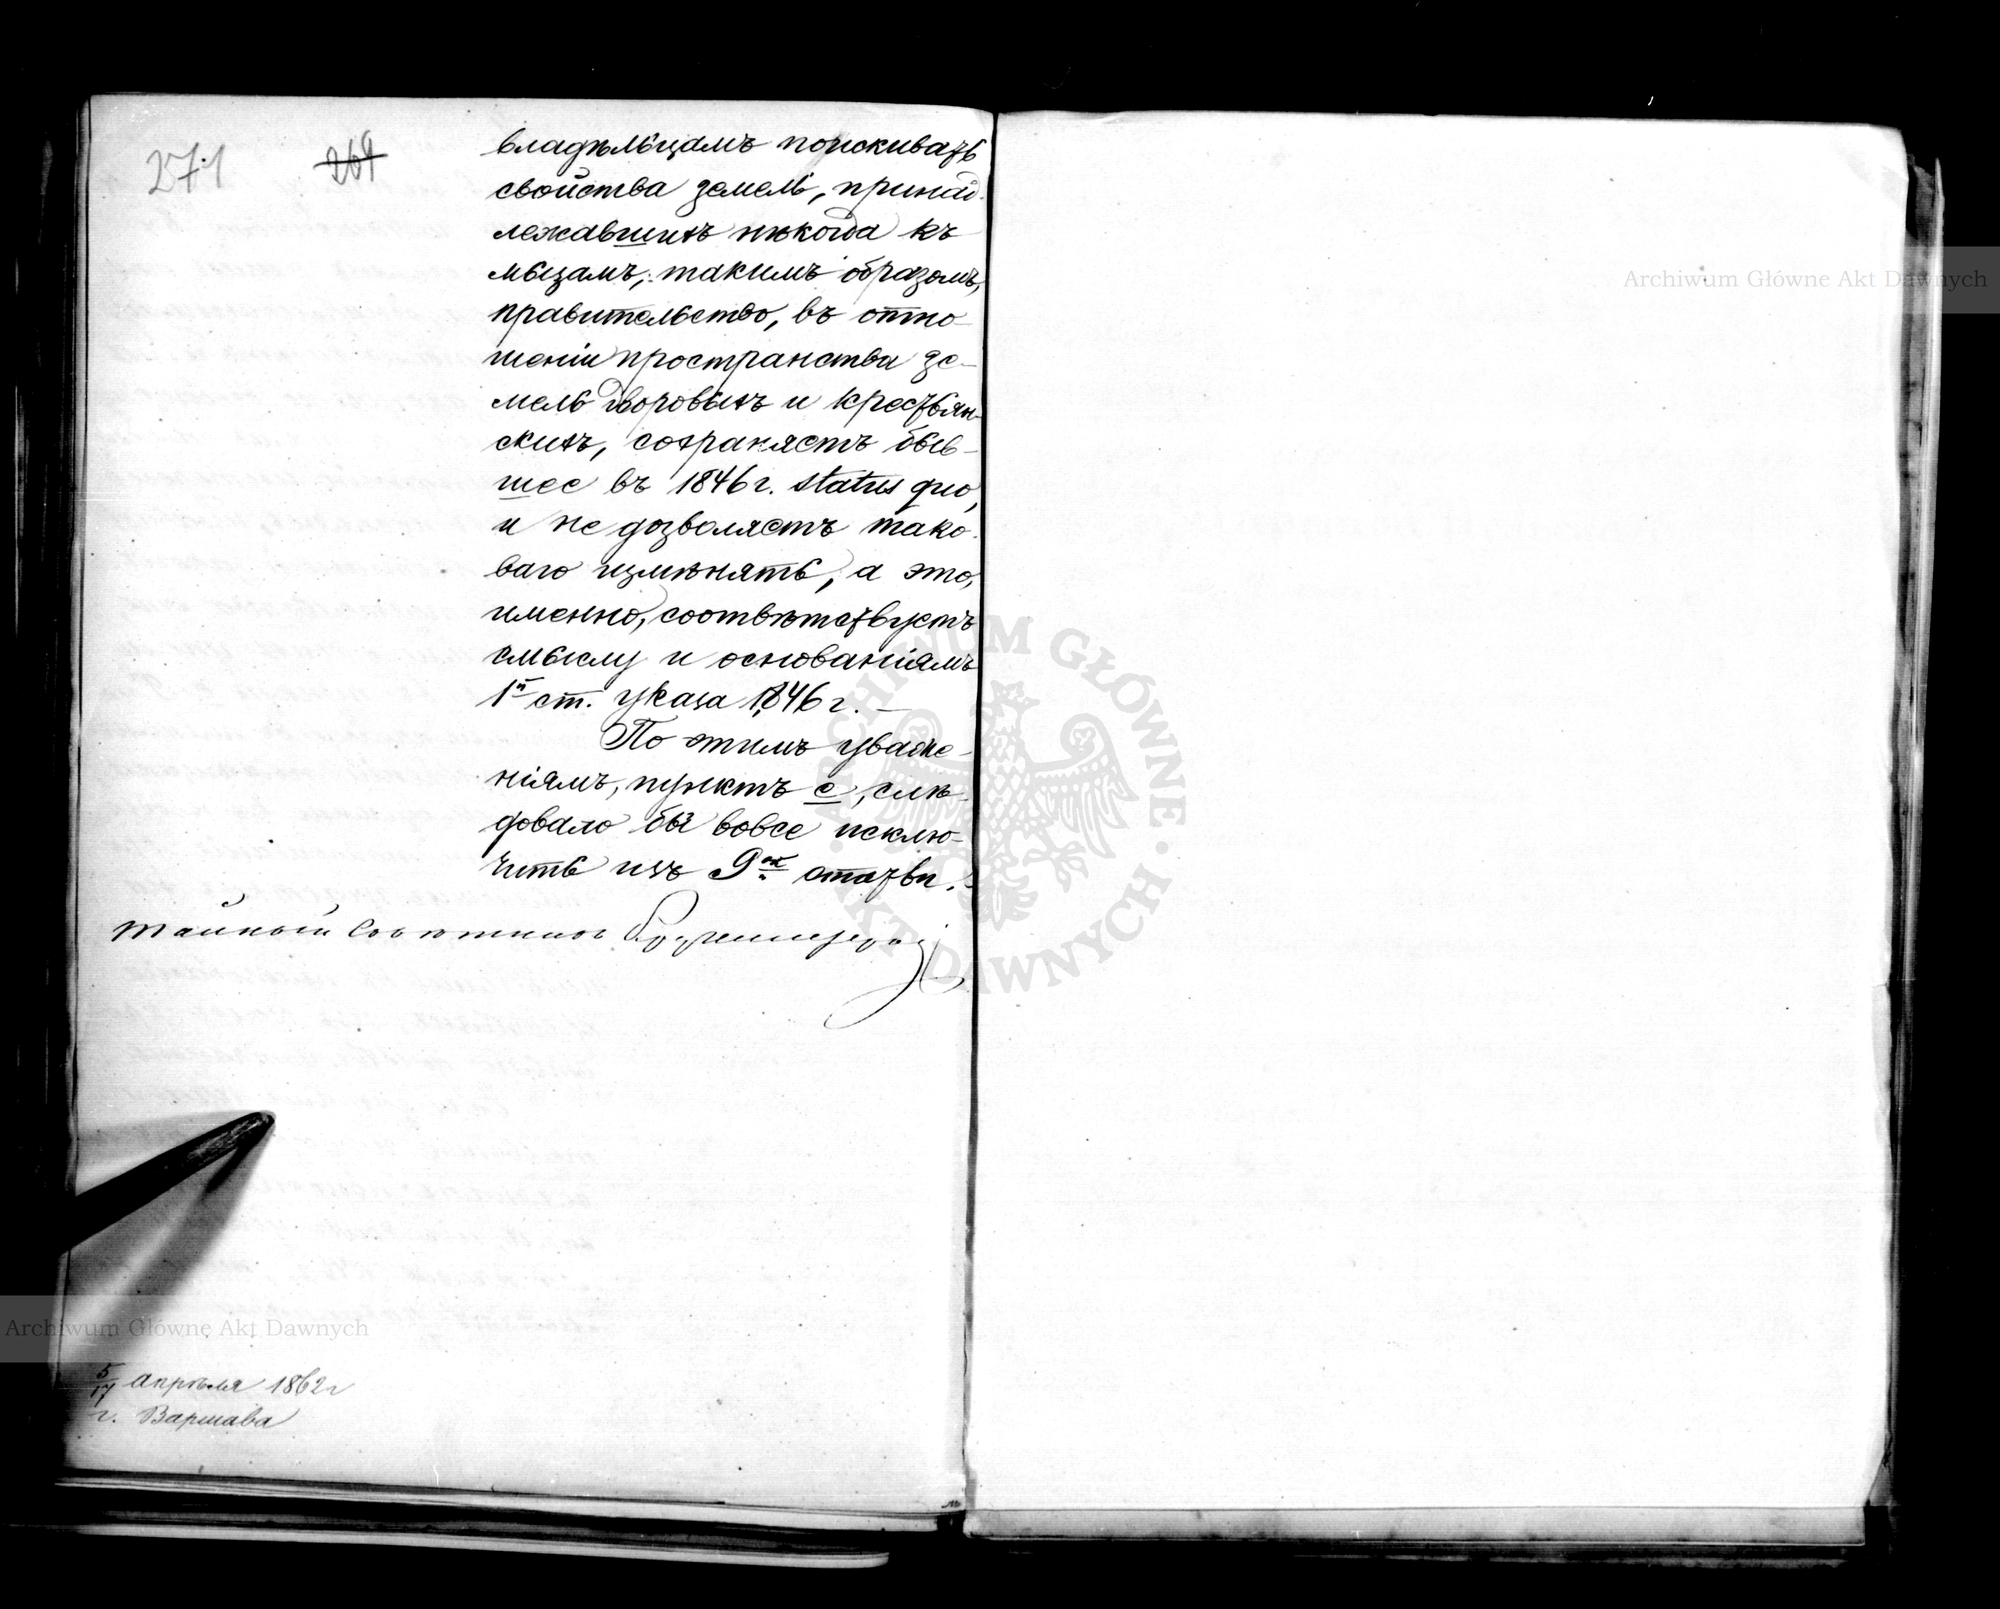 271 269
владѣльцамъ поискивать
свойства земель, принад-
лежавшихъ нѣкогда къ
мызамъ; такимъ образомъ,
правительство, въ отно-
шеніи пространства зе-
мель дворовыхъ и крестьян-
скихъ, сохраняетъ быв-
шее въ 1846 г. status quo,
и не дозволяетъ тако-
ваго измѣнять, а это,
именно, соотвѣтствуетъ
смыслу и основаніямъ
1й ст. указа 1846 г. —
По этимъ уваже-
ніямъ, пунктъ с, слѣ-
довало бы вовсе исклю-
чить изъ 9ой
Тайный Совѣтникъ
5/17 Апрѣля 1862 г
г. Варшава
Archiwum Główne Akt Dawnych
Archiwum Główne Akt Dawnych
ARCHIWUM GŁÓWNE · AKT DAWNYCH ·